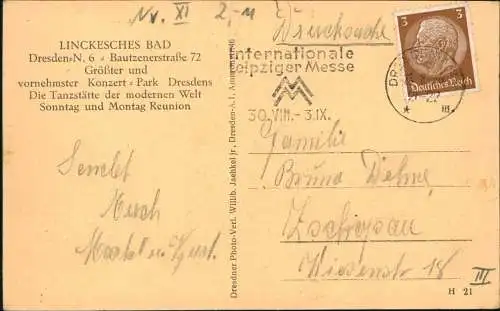 Nr. XI 2,-
Drucksache
3
Deutsches Reich
Internationale
Leipziger Messe
30.VIII.-3.IX.
LINCKESCHES BAD
Dresden-N. 6 • Bautzenerstraße 72
Größter und
vornehmster Konzert-Park Dresdens
Die Tanzstätte der modernen Welt
Sonntag und Montag Reunion
Dresdner Photo-Verl. Willib. Jaehkel jr., Dresden-A.1,
Familie
Bruno Dehne
Zschopau
Wiesenstr 18
Sendet
Euch
III
H 21